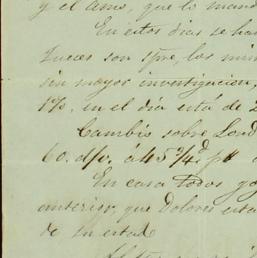 y el amo, que lo mand
En estos dias se ha
Jueces son spre, los mis
sin mayor investigacion,
1%, en el dia está de 2
Cambio sobre Lond
60. d/v. á 45 3/4 d. p$
En casa todos go
anterior, que Dolores esta
de su estad